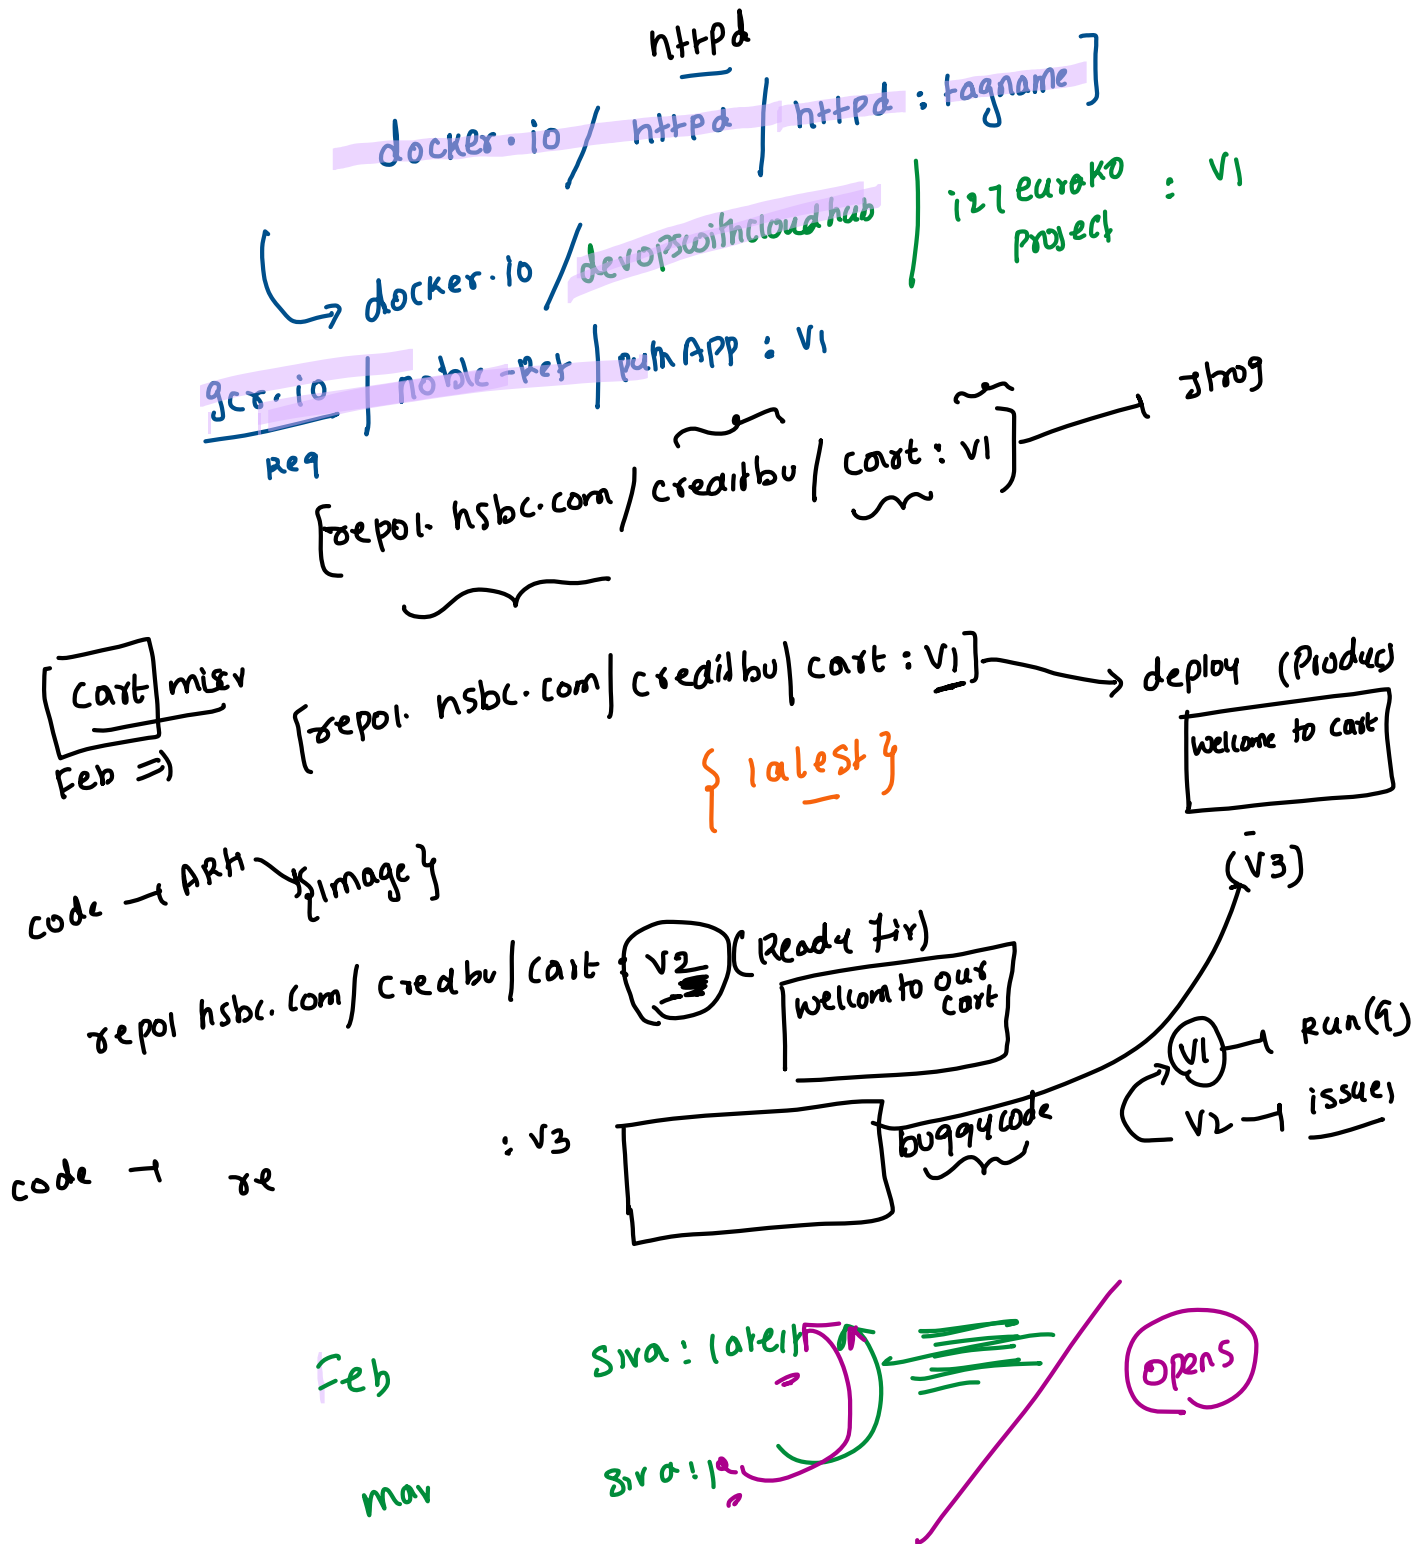 httpd
docker.io / httpd / httpd : tagname ]
docker.io / devopswithcloudhub | i27euroko : v1
project
gcr.io | noble-Ref | puthApp : v1
Reg
[repo1. hsbc.com / creditbu / cart : v1] Jfrog
[ Cart miserv
Feb =>
[repo1. hsbc.com | creditbu | cart : v1] deploy (Produc)
welcome to cart
{ latest }
(v3)
code ARM {image}
repo1 hsbc.com / credbu | cart : v2 (Ready Fir)
welcom to our
cart
v1 Run(9)
v2 issues
code re : v3 buggycode
Feb siva : latest
opens
mar siva : l